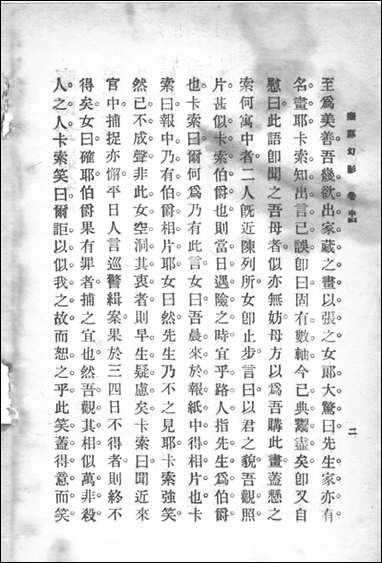 至爲美善吾幾欲出家藏之畫以張之女郎大驚曰先生家亦有。
名畫耶卡索知出言已誤卽曰固有數軸今已典鬻盡矣卽又自
慰曰此語卽聞之吾母者似亦無妨母方以爲吾購此畫蓋懸之
索何寓中者二人旣近陳列所女卽止步言曰以君之貌吾觀照
片甚似卡索伯爵也則當日遇險之時宜乎路人指先生爲伯爵
也。卡索曰爾何爲乃有此言女曰吾晨來於報紙中得相片也卡
索曰報中乃有伯爵相片耶女曰然先生乃不之見耶卡索強笑。
然已不成聲非此女空洞其衷者則早生疑慮矣卡索曰聞近來
官中捕捉亦懈平日人言巡警緝案果於三四日不得者則終不
得矣女曰確耶伯爵果有罪者捕之宜也然吾觀其相似萬非殺
人之人卡索笑曰爾詎以似我之故而恕之乎此笑蓋得意而笑。
卷中
二